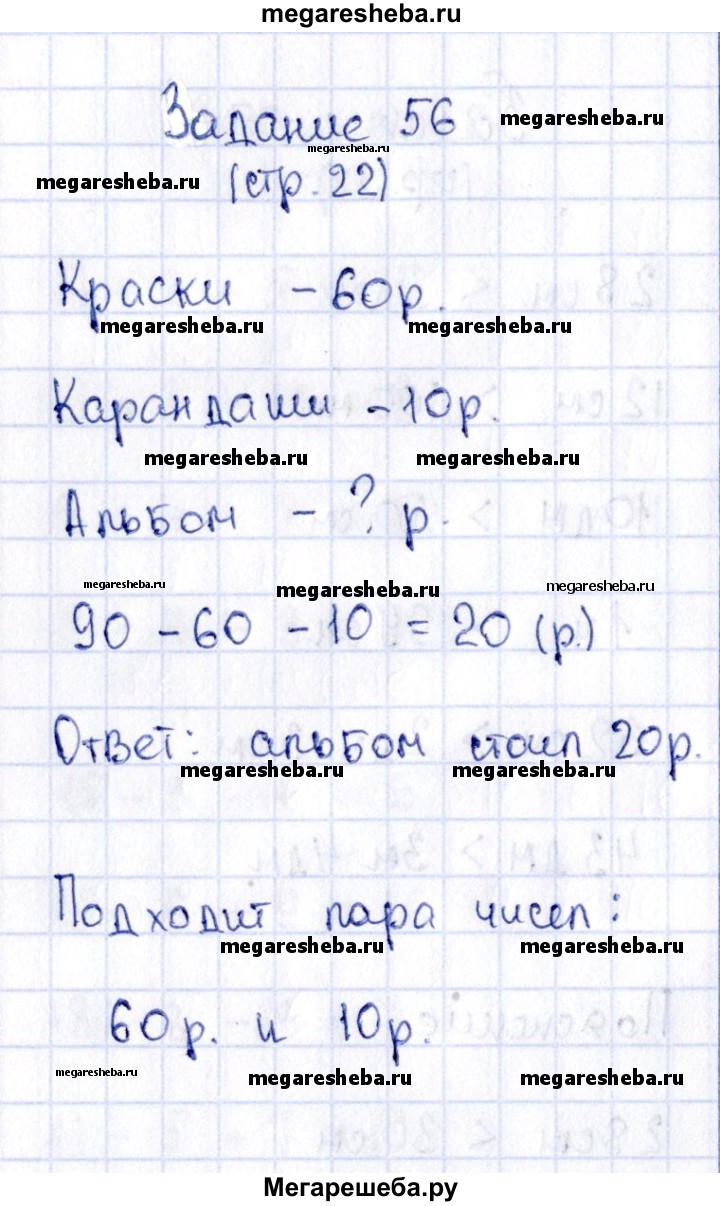 megaresheba.ru
Задание 56
megaresheba.ru
megaresheba.ru
megaresheba.ru
(стр. 22)
Краски - 60р.
megaresheba.ru megaresheba.ru
Карандаши - 10р.
megaresheba.ru megaresheba.ru
Альбом - ? р.
megaresheba.ru megaresheba.ru megaresheba.ru
90 - 60 - 10 = 20 (р.)
Ответ: альбом стоил 20р.
megaresheba.ru megaresheba.ru
Подходит пара чисел:
megaresheba.ru megaresheba.ru
60р. и 10р.
megaresheba.ru megaresheba.ru megaresheba.ru
Мегарешеба.ру